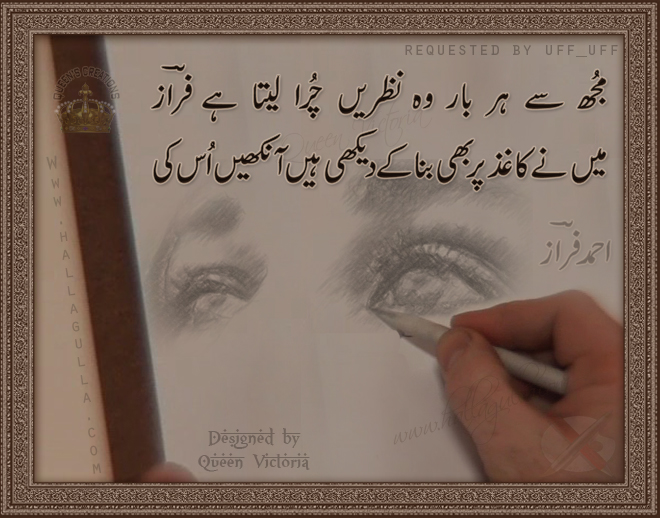 REQUESTED BY UFF_UFF
QUEEN'S CREATIONS
مجُھ سے ہر بار وہ نظریں چُرا لیتا ہے فرازؔ
میں نے کاغذ پر بھی بنا کے دیکھی ہیں آنکھیں اُس کی
احمد فرازؔ
WWW.HALLAGULLA.COM
Designed by
Queen Victoria